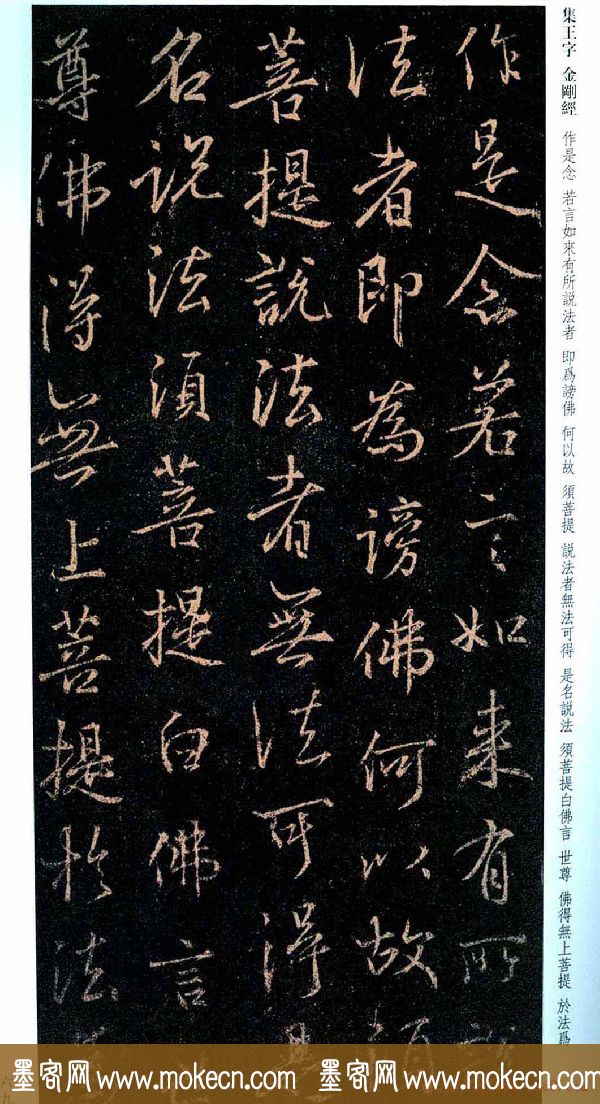 集王字 金剛經 作是念 若言如來有所説法者 即爲謗佛 何以故 須菩提 説法者無法可得 是名説法 須菩提白佛言 世尊 佛得無上菩提 於法爲
作是念若言如来有所説
法者即為謗佛何以故須
菩提説法者無法可得是
名説法須菩提白佛言
尊佛得無上菩提於法
墨客网 www.mokecn.com 墨客网 www.mokecn.com